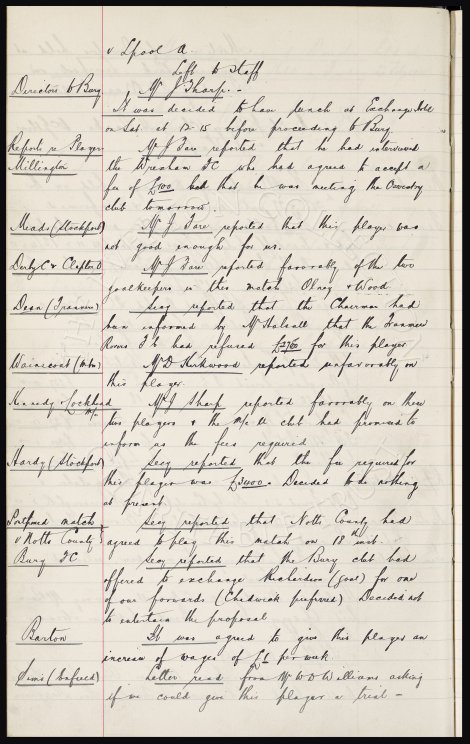 v Lpool A.
Left to Staff
Mr J Sharp. -
Directors to Bury
It was decided to have lunch at Exchange Hotel
on Sat at 12-15 before proceeding to Bury.
Reports re Players
Mr J Fare reported that he had interviewed
Millington
the Wrexham FC who had agreed to accept a
fee of £100 but that he was meeting the Coventry
club tomorrow.
Meads (Stockport)
Mr J Fare reported that this player was
not good enough for us.
Derby C v Clapton O
Mr J Fare reported favorably of the two
goalkeepers in this match Olney & Wood
Dean (Tranmere)
Secy reported that the Chairman had
been informed by Mr Halsall that the Tranmere
Rovers FC had refused £2760 for this player
Wainscoat (Mbro)
Mr D Kirkwood reported unfavorably on
this player.
Kennedy & Lockhead
M/c
Mr J Sharp reported favorably on these
two players & the M/c U club had promised to
inform us the fees required
Hardy (Stockport)
Secy reported that the fee required for
this player was £3400. Decided to do nothing
at present.
Postponed match
Secy reported that Notts County had
v Notts County
agreed to play this match on 18th inst.
Bury FC
Secy reported that the Bury club had
offered to exchange Richardson (Goal) for one
of our forwards (Chadwick preferred) Decided not
to entertain the proposal
Barton
It was agreed to give this player an
increase of wages of £1 per week.
Sims (Enfield)
Letter read from Mr W D Williams asking
if we could give this player a trial -